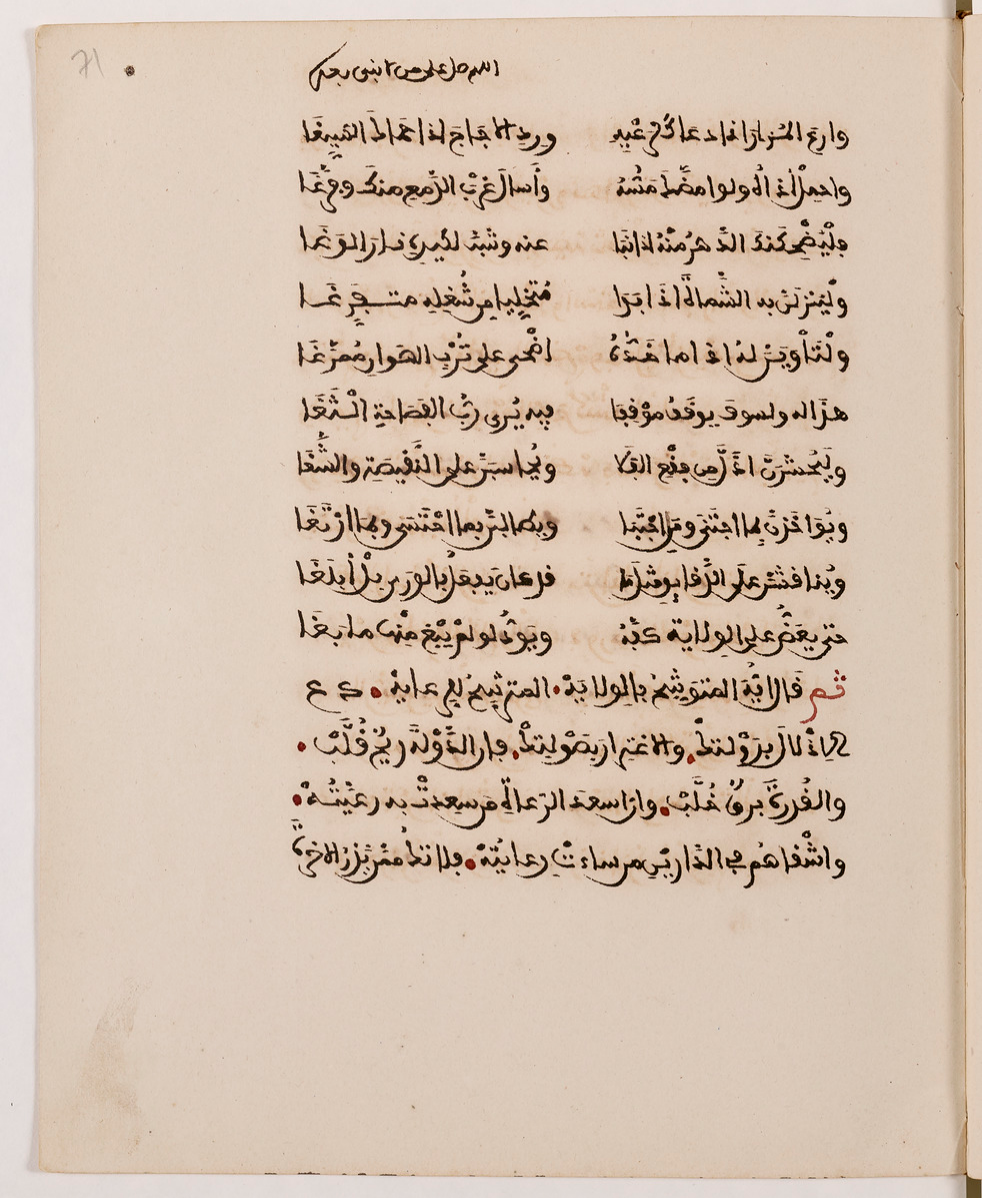 اللهم صل على من لا نبي بعده
وارع المرار اذا دعاك لرعيه ورد الاجاج اذا حماك السيغا
واحمل أذاه ولو امضك مسه وأسال غرب الدمع منك وفرغا
فليضحكنك الدهر منه اذا نبا عنه وشب لكيده نار الوغا
ولينزلن به الشماة اذا بدا متخليا من شغله متفرغا
ولتأوين له اذا ما خده اضحى على ترب الهوان ممرغا
هذا له ولسوف يوقف موقفا فيه يرى رب الفصاحة الثغا
وليحشرن اذل من فقع الفلا ويحاسبن على النقيصة والشغا
ويواخذن بما اجتنى ومن اجتبا ويطالبن بما احتسى وبما ارتغا
ويناقشن على الدقايق مثل ما قد كان يفعل بالورى بل أبلغا
حتى يعض على الولاية كفه ويود لو لم يبغ منها ما بغا
ثم قال ايها المتوشح بالولاية المترشح للرعاية دع
الادلال بدولتك والاغترار بصولتك فان الدولة ريح قلب
والقدرة برق خلب وان اسعد الرعاة من سعدت به رعيته
واشقاهم في الدارين من ساءت رعايته فلا تك ممن يذر الاخرة